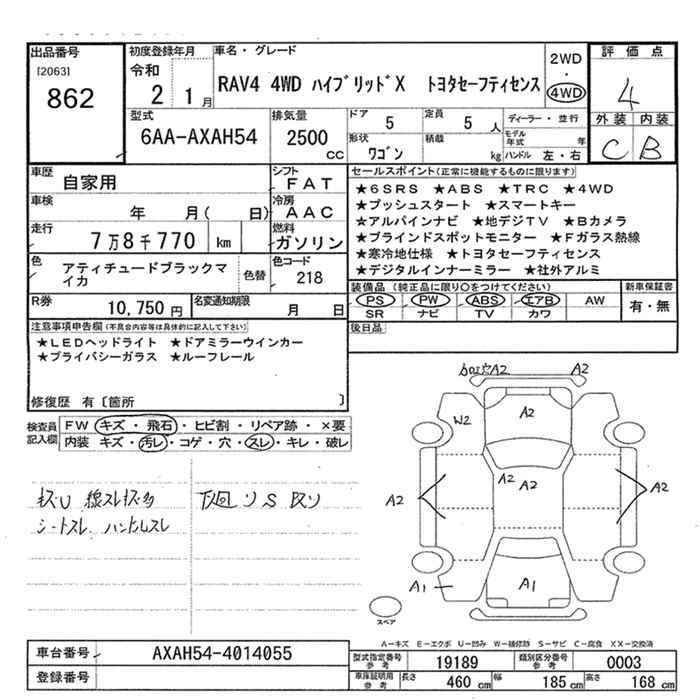 出品番号
[2063]
862
初度登録年月
令和
2 1月
車名・グレード
RAV4 4WD ハイブリッドX トヨタセーフティセンス
2WD
・
4WD
評価点
4
外装 内装
C B
型式
6AA-AXAH54
排気量
2500
CC
ドア
5
定員
5 人
形状
ワゴン
積載
kg
ディーラー・並行
モデル年式 年
ハンドル 左・右
車歴
自家用
シフト
FAT
車検
年 月( 日)
冷房
AAC
走行
7万8千770 km
燃料
ガソリン
色
アティチュードブラックマイカ
色替
色コード
218
R券
10,750円
名変通知期限
月 日
セールスポイント(正常に機能するものに限ります)
★6SRS ★ABS ★TRC ★4WD
★プッシュスタート ★スマートキー
★アルパインナビ ★地デジTV ★Bカメラ
★ブラインドスポットモニター ★Fガラス熱線
★寒冷地仕様 ★トヨタセーフティセンス
★デジタルインナーミラー ★社外アルミ
装備品(純正品に限り○をつけてください)
PS PW ABS エアB AW
SR ナビ TV カワ
新車保証書
有・無
後日品
注意事項申告欄(不具合内容等は具体的に記入して下さい)
★LEDヘッドライト ★ドアミラーウインカー
★プライバシーガラス ★ルーフレール
修復歴 有〔箇所 〕
検査員記入欄
FW キズ・飛石・ヒビ割・リペア跡・×要
内装 キズ・汚レ・コゲ・穴・スレ・キレ・破レ
シートスレ ハンドルスレ
下廻りS
A2
A2
W2
A2
A2
A2
A2
A2
A1
A1
スペア
A-キズ E-エクボ U-凹み W-補修跡 S-サビ C-腐食 XX-交換済
車台番号
AXAH54-4014055
登録番号
型式指定番号 参考
19189
類別区分番号 参考
0003
車庫証明用 参考
長さ 460 cm
幅 185 cm
高さ 168 cm